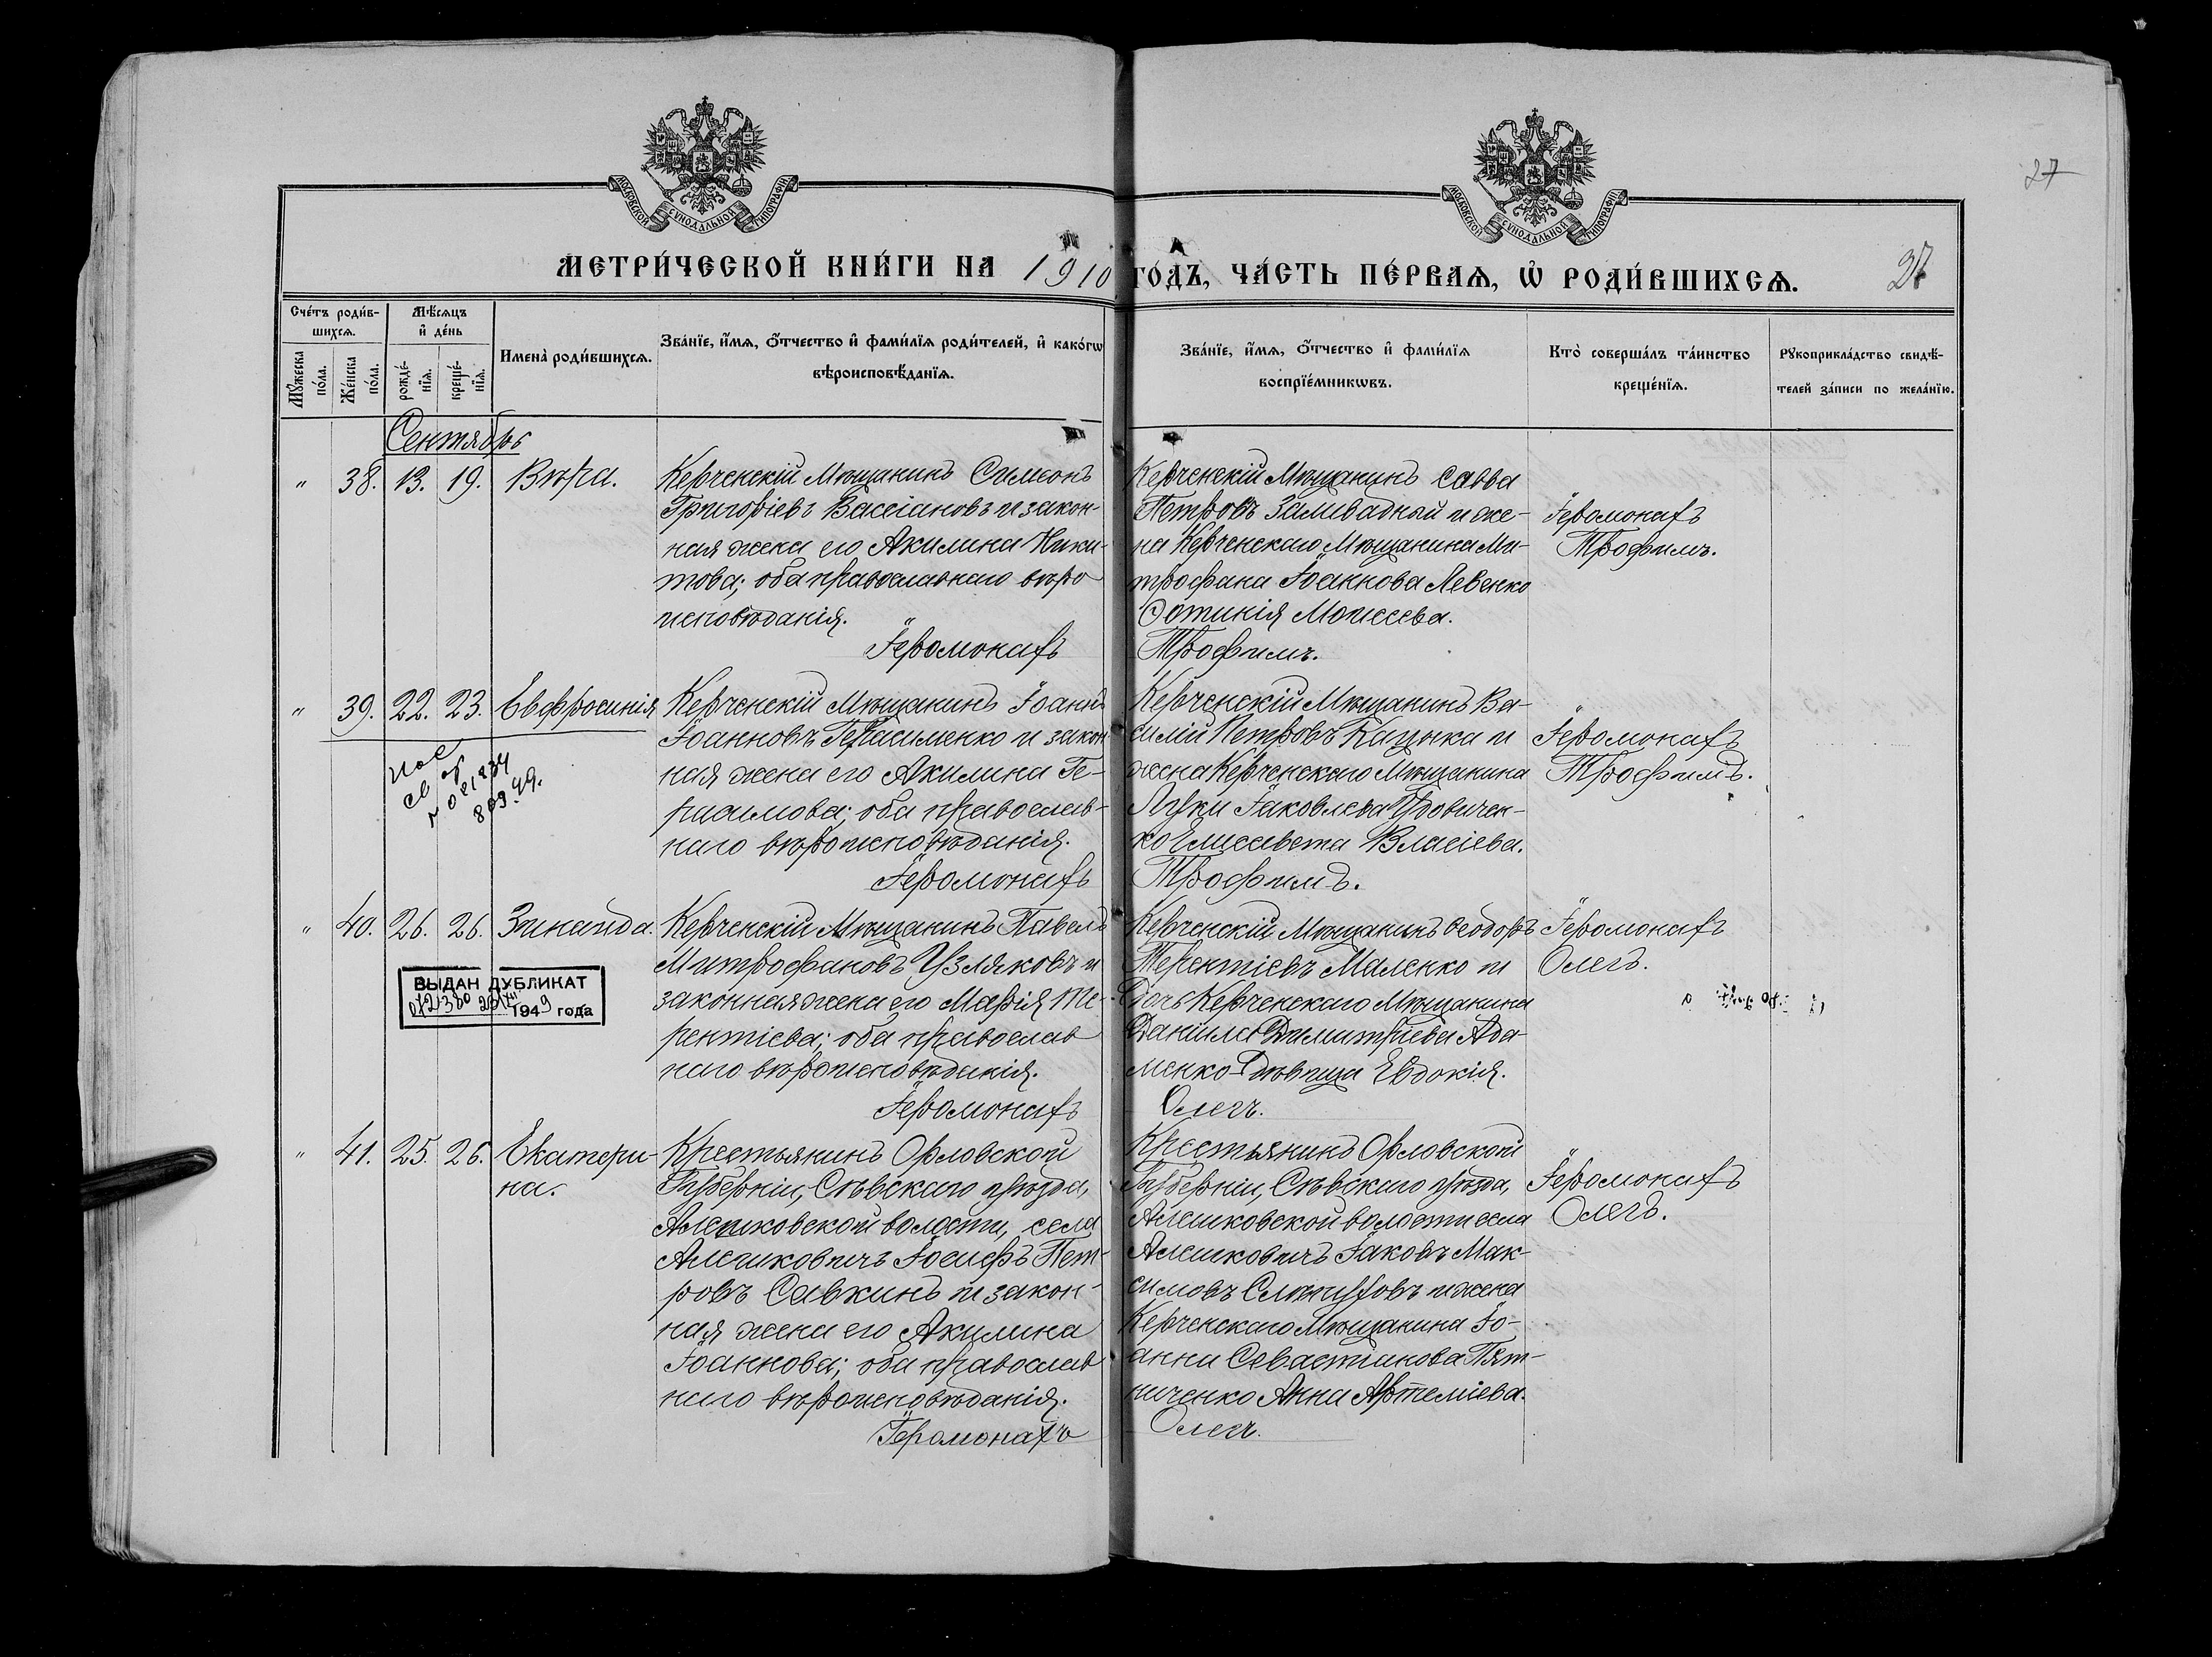 27
МОСКОВСКОЙ СУНОДАЛЬНОЙ ТИПОГРАФІИ
МОСКОВСКОЙ СУНОДАЛЬНОЙ ТИПОГРАФІИ
МЕТРИ́ЧЕСКОЙ КНИ́ГИ НА 1910 ГО́ДЪ, ЧА́СТЬ ПЕ́РВАѦ, Ѡ҆ РОДИ́ВШИХСѦ.
27
Сче́тъ роди́в-
шихсѧ.
Мꙋ́жеска по́ла.
Же́нска по́ла.
Мѣ́сѧцъ
и҆ де́нь
рожде́-
нїѧ.
креще́-
нїѧ.
Имена̀ роди́вшихсѧ.
Зва́нїе, и҆́мѧ, ѻ҆́тчество и҆ фами́лїѧ роди́телей, и҆ како́гѡ
вѣроисповѣ́данїѧ.
Зва́нїе, и҆́мѧ, ѻ҆́тчество и҆ фами́лїѧ
воспрїе́мникѡвъ.
Кто̀ соверша́лъ та́инство
креще́нїѧ.
Рꙋкоприкла́дство свидѣ́-
телей за́писи по жела́нїю.
Сентябрь
" 38. 13. 19. Вѣра.
Керченскій Мѣщанинъ Симеонъ
Григоріевъ Вассіановъ и закон-
ная жена его Акилина Ники-
това; оба православнаго вѣро
исповѣданія.
Іеромонахъ
Керченскій Мѣщанинъ Савва
Петровъ Заливадной и же-
на Керченскаго Мѣщанина Ми-
трофана Іоаннова Левенко
Фотинія Моисеева.
Трофимъ.
Іеромонахъ
Трофимъ.
" 39. 22. 23. Евфросинія
Керченскій Мѣщанинъ Іоаннъ
Іоанновъ Герасименко и закон
ная жена его Акилина Ге-
расимова; оба православ-
наго вѣроисповѣданія.
Іеромонахъ
Керченскій Мѣщанинъ Ва-
силій Петровъ Кацынка и
жена Керченскаго Мѣщанина
Луки Іаковлева Удовичен-
ко Елисавета Власіева.
Трофимъ.
Іеромонахъ
Трофимъ.
" 40. 26. 26. Зинаида.
Керченскій Мѣщанинъ Павелъ
Митрофановъ Узляковъ и
законная жена его Марія Те-
рентіева; оба православ
наго вѣроисповѣданія.
Іеромонахъ
ВЫДАН ДУБЛИКАТ
1949 года
Керченскій Мѣщанинъ Ѳеодоръ
Терентіевъ Маленко и
Дочь Керченскаго Мѣщанина
Даніила Димитріева Ада-
менко Дѣвица Евдокія.
Олегъ.
Іеромонахъ
Олегъ.
" 41. 25. 26. Екатери-
на.
Крестьянинъ Орловской
Губерніи, Сѣвскаго уѣзда,
Алешковской волости, села
Алешковичъ Іосифъ Пет-
ровъ Савкинъ и закон-
ная жена его Акилина
Іоаннова; оба православ
наго вѣроисповѣданія.
Іеромонахъ
Крестьянинъ Орловской
Губерніи, Сѣвскаго уѣзда,
Алешковской волости села
Алешковичъ Іаковъ Мак-
симовъ и жена
Керченскаго Мѣщанина Іо-
анна Севастіанова Пят-
ниченко Анна Артеміева.
Олегъ.
Іеромонахъ
Олегъ.